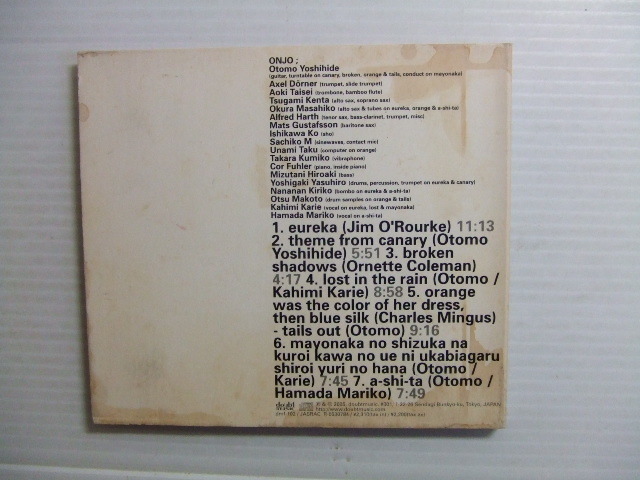 ONJO ;
Otomo Yoshihide
(guitar, turntable on canary, broken, orange & tails, conduct on mayonaka)
Axel Dörner (trumpet, slide trumpet)
Aoki Taisei (trombone, bamboo flute)
Tsugami Kenta (alto sax, soprano sax)
Okura Masahiko (alto sax & tubes on eureka, orange & a-shi-ta)
Alfred Harth (tenor sax, bass-clarinet, trumpet, misc)
Mats Gustafsson (baritone sax)
Ishikawa Ko (sho)
Sachiko M (sinewaves, contact mic)
Unami Taku (computer on orange)
Takara Kumiko (vibraphone)
Cor Fuhler (piano, inside piano)
Mizutani Hiroaki (bass)
Yoshigaki Yasuhiro (drums, percussion, trumpet on eureka & canary)
Nananan Kiriko (bombo on eureka & a-shi-ta)
Otsu Makoto (drum samples on orange & tails)
Kahimi Karie (vocal on eureka, lost & mayonaka)
Hamada Mariko (vocal on a-shi-ta)
1. eureka (Jim O'Rourke) 11:13
2. theme from canary (Otomo
Yoshihide) 5:51 3. broken
shadows (Ornette Coleman)
4:17 4. lost in the rain (Otomo /
Kahimi Karie) 8:58 5. orange
was the color of her dress,
then blue silk (Charles Mingus)
- tails out (Otomo) 9:16
6. mayonaka no shizuka na
kuroi kawa no ue ni ukabiagaru
shiroi yuri no hana (Otomo /
Karie) 7:45 7. a-shi-ta (Otomo /
Hamada Mariko) 7:49
doubt
music
P & © 2005, doubtmusic, Tokyo, JAPAN
http://www.doubtmusic.com
dmf 102 / JASRAC